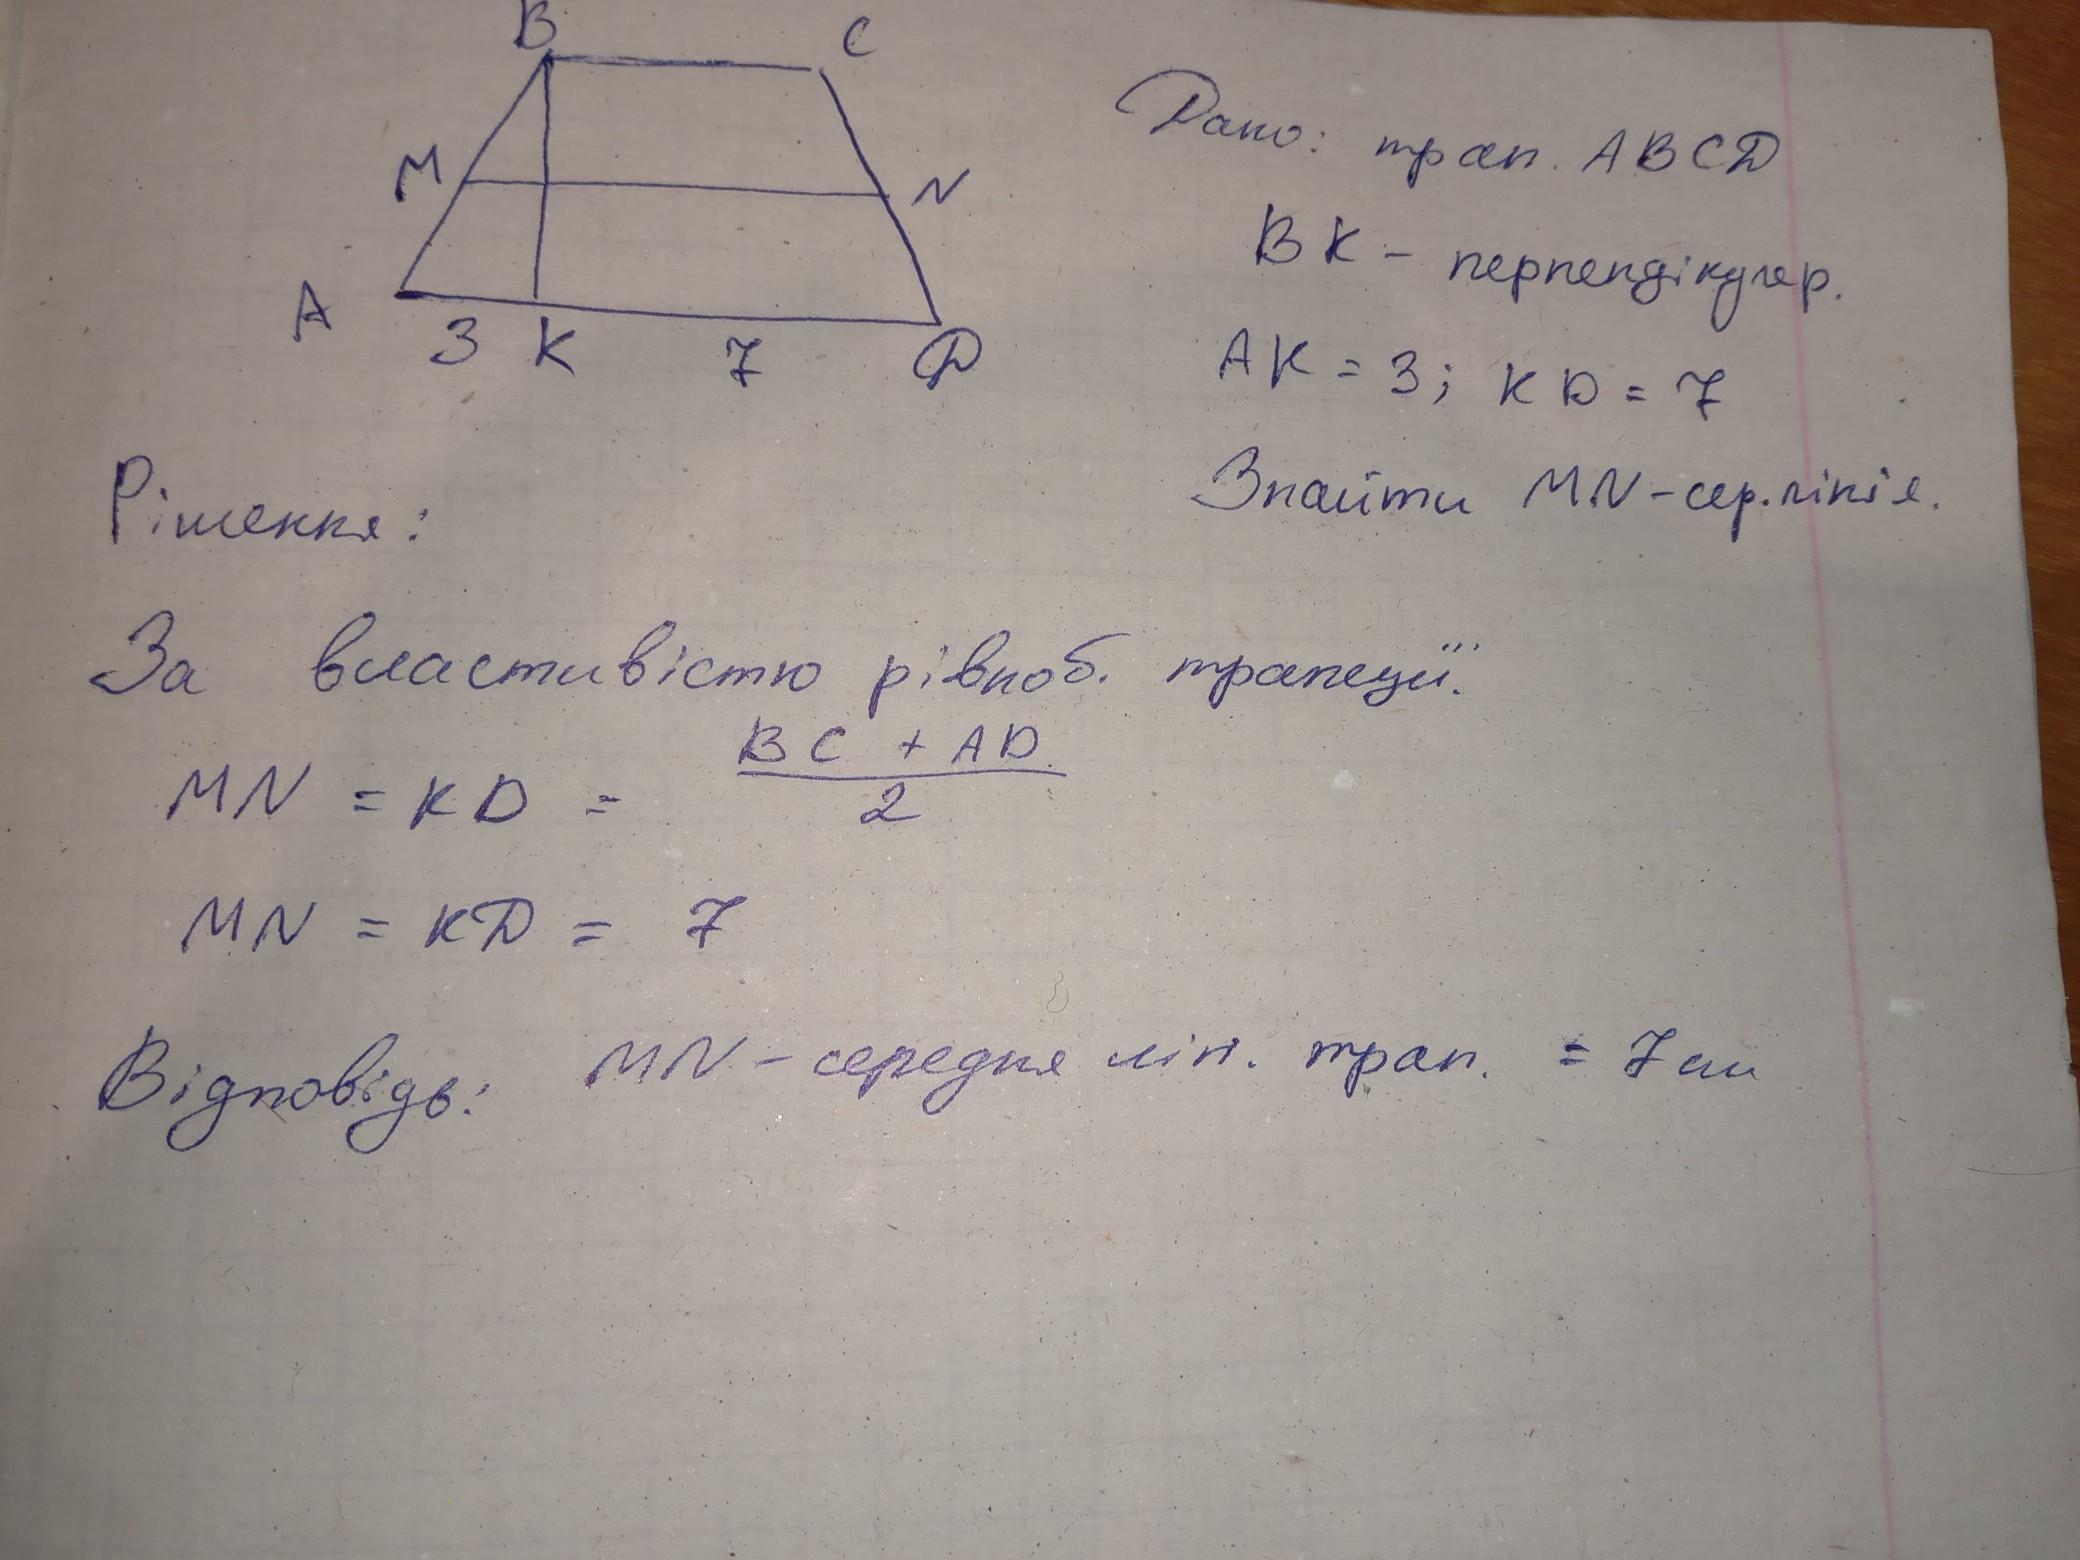 B C
M N
A 3 K 7 D
Дано: трап. ABCD
BK - перпендікуляр.
AK = 3; KD = 7
Знайти MN - сер. лінія.
Рішення:
За властивістю рівноб. трапеції.
MN = KD = BC + AD / 2
MN = KD = 7
Відповідь: MN - середня лін. трап. = 7 см